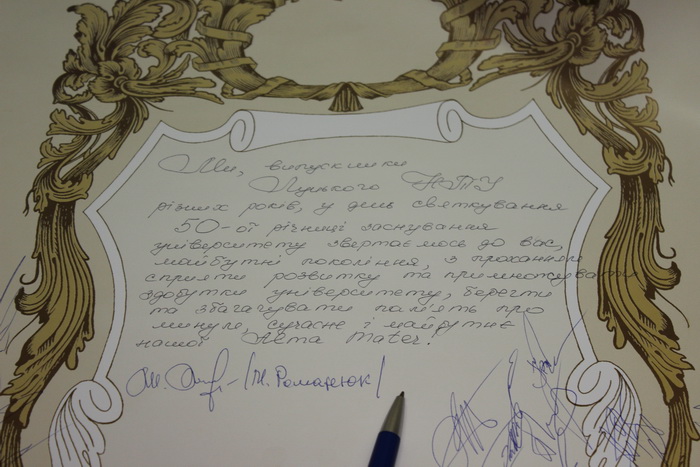 Ми, випускники
Луцького НТУ
різних років, у день святкування
50-ої річниці заснування
університету звертаємось до вас,
майбутні покоління, з проханням
сприяти розвитку та примножувати
здобутки університету, берегти
та збагачувати пам'ять про
минуле, сучасне і майбутнє
нашої Alma Mater.
/М. Романюк/